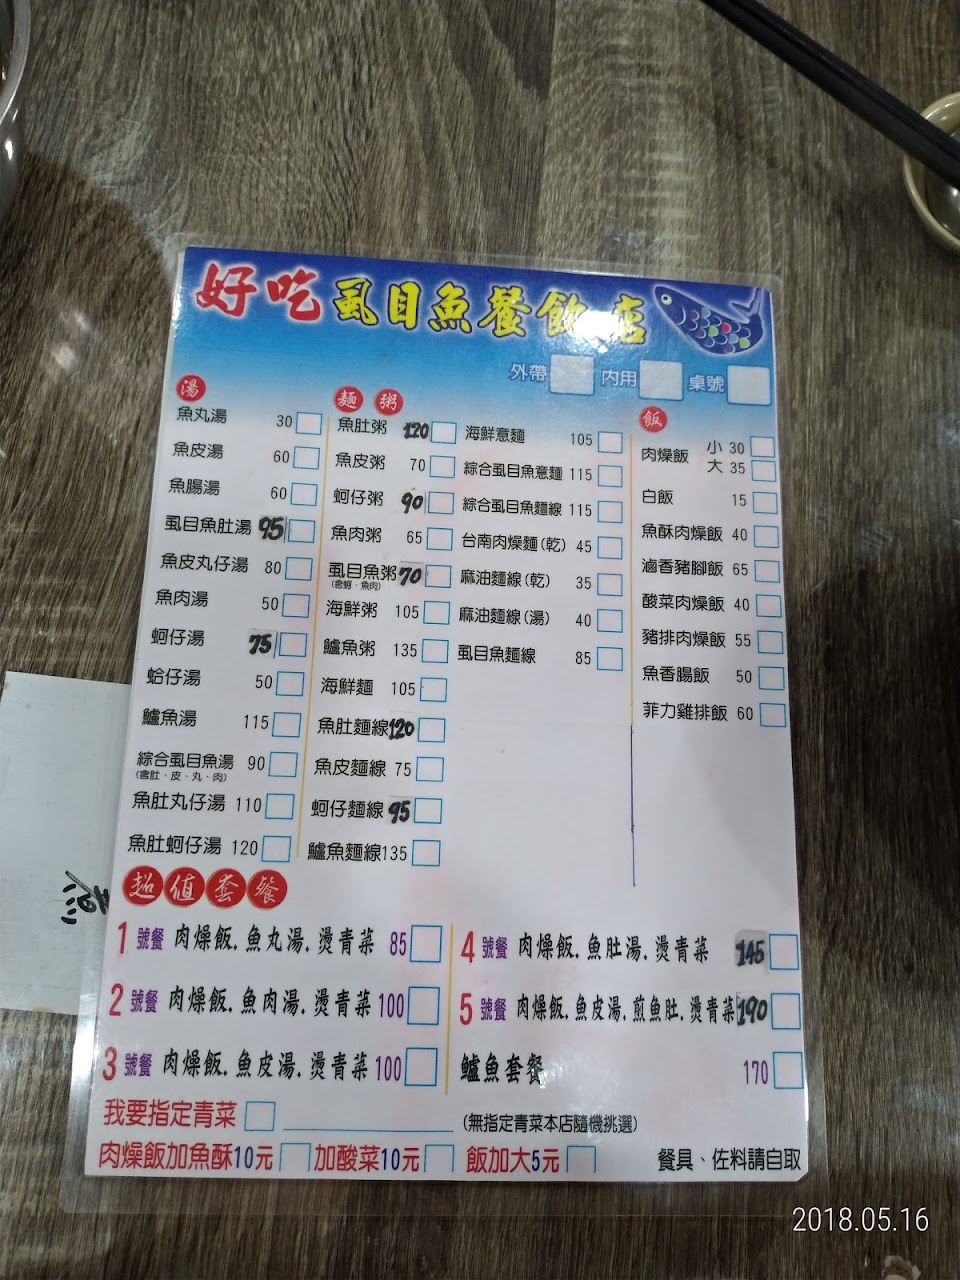 好吃虱目魚餐飲店
外帶 內用 桌號
湯
魚丸湯 30
魚皮湯 60
魚腸湯 60
虱目魚肚湯 95
魚皮丸仔湯 80
魚肉湯 50
蚵仔湯 75
蛤仔湯 50
鱸魚湯 115
綜合虱目魚湯 90
(含肚、皮、丸、肉)
魚肚丸仔湯 110
魚肚蚵仔湯 120
麵 粥
魚肚粥 120
魚皮粥 70
蚵仔粥 90
魚肉粥 65
虱目魚粥 70
(含蚵、魚肉)
海鮮粥 105
鱸魚粥 135
海鮮麵 105
魚肚麵線 120
魚皮麵線 75
蚵仔麵線 95
鱸魚麵線 135
海鮮意麵 105
綜合虱目魚意麵 115
綜合虱目魚麵線 115
台南肉燥麵(乾) 45
麻油麵線(乾) 35
麻油麵線(湯) 40
虱目魚麵線 85
飯
肉燥飯 小 30
大 35
白飯 15
魚酥肉燥飯 40
滷香豬腳飯 65
酸菜肉燥飯 40
豬排肉燥飯 55
魚香腸飯 50
菲力雞排飯 60
超值套餐
1 號餐 肉燥飯.魚丸湯.燙青菜 85
2 號餐 肉燥飯.魚肉湯.燙青菜 100
3 號餐 肉燥飯.魚皮湯.燙青菜 100
4 號餐 肉燥飯.魚肚湯.燙青菜 145
5 號餐 肉燥飯.魚皮湯.煎魚肚.燙青菜 190
鱸魚套餐 170
我要指定青菜 (無指定青菜本店隨機挑選)
肉燥飯加魚酥10元 加酸菜10元 飯加大5元 餐具、佐料請自取
2018.05.16